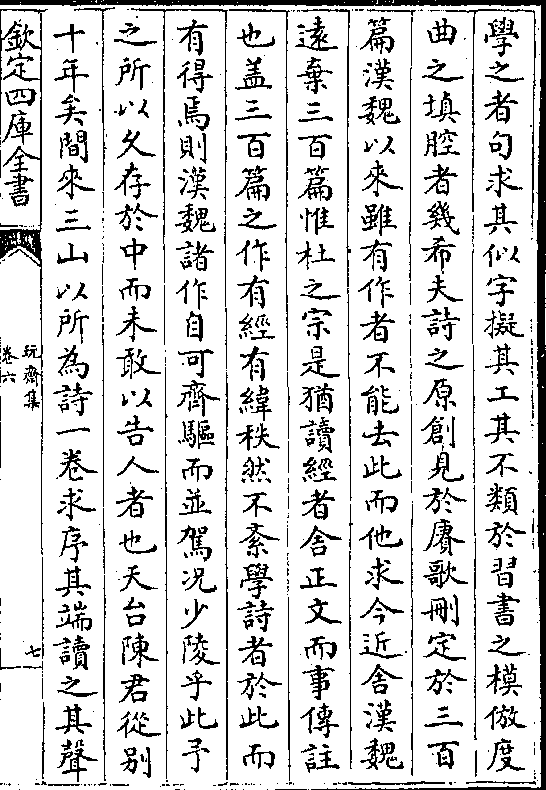 學之者句求其似字擬其工其不類於習書之模倣度
曲之填腔者幾希夫詩之原創見於賡歌刪定於三百
篇漢魏以來雖有作者不能去此而他求今近舍漢魏
遠棄三百篇惟杜之宗是猶讀經者舍正文而事傳註
也盖三百篇之作有經有緯秩然不紊學詩者於此而
有得焉則漢魏諸作自可齊驅而並駕況少陵乎此予
之所以久存於中而未敢以告人者也天台陳君從别
十年矣間來三山以所為詩一卷求序其端讀之其聲
欽定四庫全書
玩齋集
卷六
七